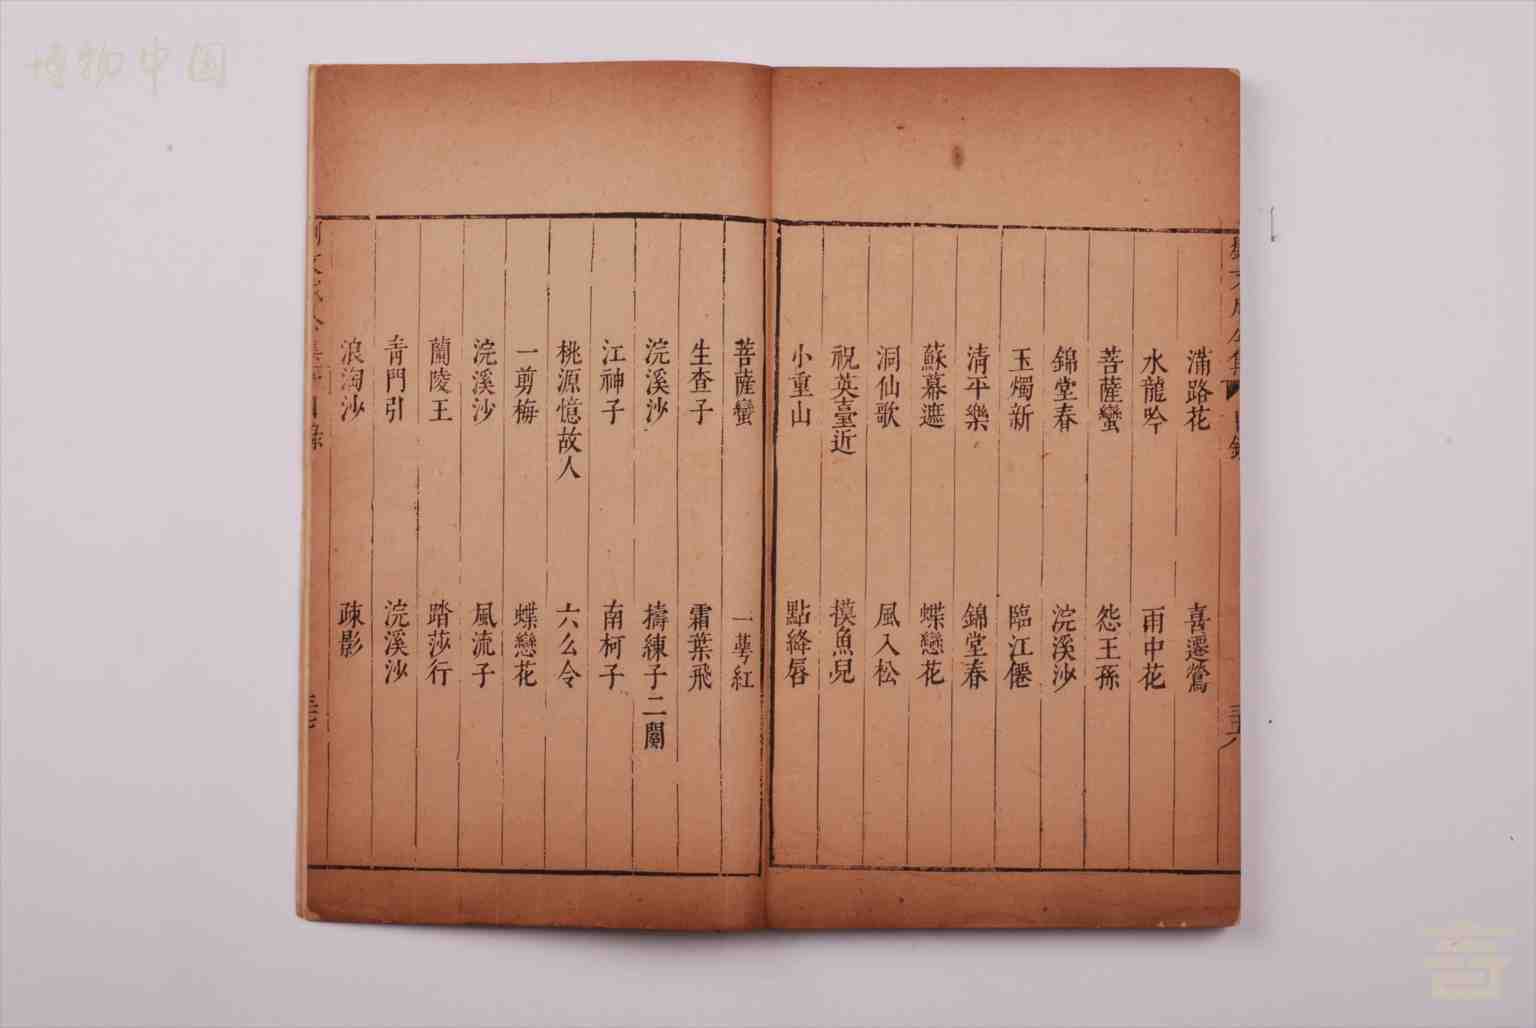 博物中国
滿路花 喜遷鶯
水龍吟 雨中花
菩薩蠻 怨王孫
錦堂春 浣溪沙
玉燭新 臨江僊
清平樂 錦堂春
蘇幕遮 蝶戀花
洞仙歌 風入松
祝英臺近 摸魚兒
小重山 點絳唇
菩薩蠻 一萼紅
生查子 霜葉飛
浣溪沙 擣練子二闋
江神子 南柯子
桃源憶故人 六么令
一剪梅 蝶戀花
浣溪沙 風流子
蘭陵王 踏莎行
靑門引 浣溪沙
浪淘沙 疎影